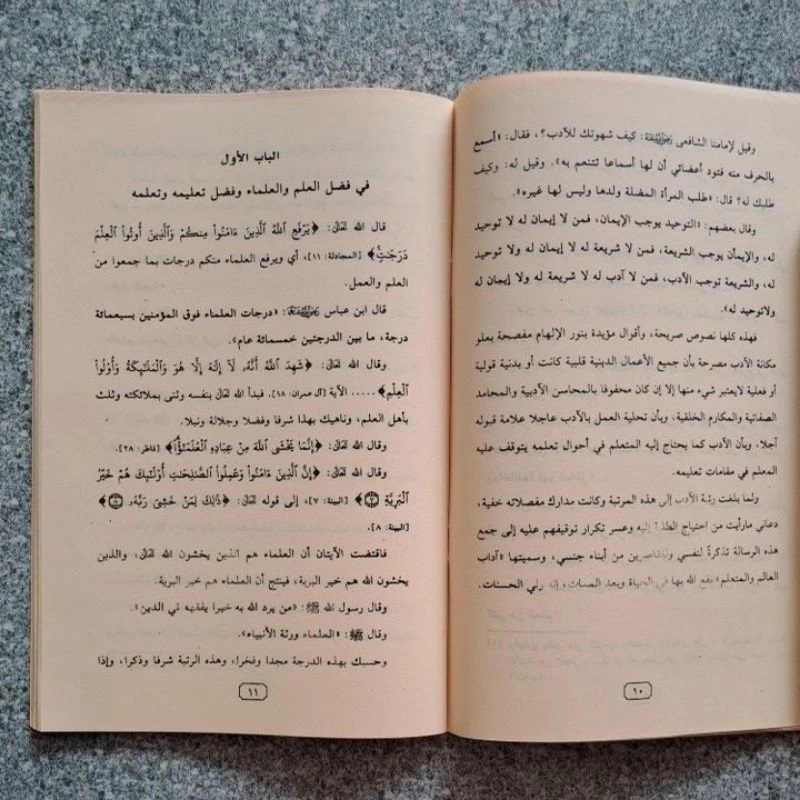 وقيل لإمامنا الشافعي رَضِيَ اللَّهُ عَنْهُ: كيف شهوتك للأدب؟، فقال: «أسمع
بالحرف منه فتود أعضائي أن لها أسماعا تتنعم به». وقيل له: وكيف
طلبك له؟ قال: «طلب المرأة المضلة ولدها وليس لها غيره».
وقال بعضهم: «التوحيد يوجب الإيمان، فمن لا إيمان له لا توحيد
له، والإيمأن يوجب الشريعة، فمن لا شريعة له لا إيمان له ولا توحيد
له، والشريعة توجب الأدب، فمن لا آدب له لا شريعة له ولا إيمان له
ولاتوحيد له».
فهذه كلها نصوص صريحة، وأقوال مؤيدة بنور الإلهام مفصحة بعلو
مكانة الأدب مصرحة بأن جميع الأعمال الدينية قلبية كانت أو بدنية قولية
أو فعلية لايعتبر شيء منها إلا إن كان محفوفا بالمحاسن الأدبية والمحامد
الصفاتية والمكارم الخلقية، وبأن تحلية العمل بالأدب عاجلا علامة قبوله
آجلا، وبأن الأدب كما يحتاج إليه المتعلم في أحوال تعلمه يتوقف عليه
المعلم في مقامات تعليمه.
ولما بلغت رتبة الأدب إلى هذه المرتبة وكانت مدارك مفصلاته خفية،
دعاني مارأيت من احتياج الطلبة إليه وعسر تكرار توقيفهم عليه إلى جمع
هذه الرسالة تذكرة لنفسي وللقاصرين من أبناء جنسي، وسميتها «آداب
العالم والمتعلم» نفع الله بها في الحياة وبعد الممات، إنه ولي الحسنات.
١٠
الباب الأول
في فضل العلم والعلماء وفضل تعليمه وتعلمه
قال الله تَعَالَى: ﴿يَرْفَعِ ٱللَّهُ ٱلَّذِينَ ءَامَنُوا۟ مِنكُمْ وَٱلَّذِينَ أُوتُوا۟ ٱلْعِلْمَ
دَرَجَـٰتٍ﴾ [المجادلة: ١١]، أي ويرفع العلماء منكم درجات بما جمعوا من
العلم والعمل.
قال ابن عباس رَضِيَ اللَّهُ عَنْهُمَا: «درجات العلماء فوق المؤمنين بسبعمائة
درجة، ما بين الدرجتين خمسمائة عام».
وقال الله تَعَالَى: ﴿شَهِدَ ٱللَّهُ أَنَّهُۥ لَآ إِلَـٰهَ إِلَّا هُوَ وَٱلْمَلَـٰٓئِكَةُ وَأُو۟لُوا۟
ٱلْعِلْمِ﴾ ..... الآية [آل عمران: ١٨]. فبدأ الله تَعَالَى بنفسه وثنى بملائكته وثلث
بأهل العلم، وناهيك بهذا شرفا وفضلا وجلالة ونبلا.
وقال الله تَعَالَى: ﴿إِنَّمَا يَخْشَى ٱللَّهَ مِنْ عِبَادِهِ ٱلْعُلَمَـٰٓؤُا۟﴾ [فاطر: ٢٨].
وقال الله تَعَالَى: ﴿إِنَّ ٱلَّذِينَ ءَامَنُوا۟ وَعَمِلُوا۟ ٱلصَّـٰلِحَـٰتِ أُو۟لَـٰٓئِكَ هُمْ خَيْرُ
ٱلْبَرِيَّةِ ٧﴾ [البينة: ٧]، إلى قوله تَعَالَى: ﴿ذَٰلِكَ لِمَنْ خَشِىَ رَبَّهُۥ ٨﴾
[البينة: ٨].
فاقتضت الآيتان أن العلماء هم الذين يخشون الله تَعَالَى، والذين
يخشون الله هم خير البرية، فينتج أن العلماء هم خير البرية.
وقال رسول الله ﷺ: «من يرد الله به خيرا يفقهه في الدين».
وقال ﷺ: «العلماء ورثة الأنبياء».
وحسبك بهذه الدرجة مجدا وفخرا، وهذه الرتبة شرفا وذكرا، وإذا
١١